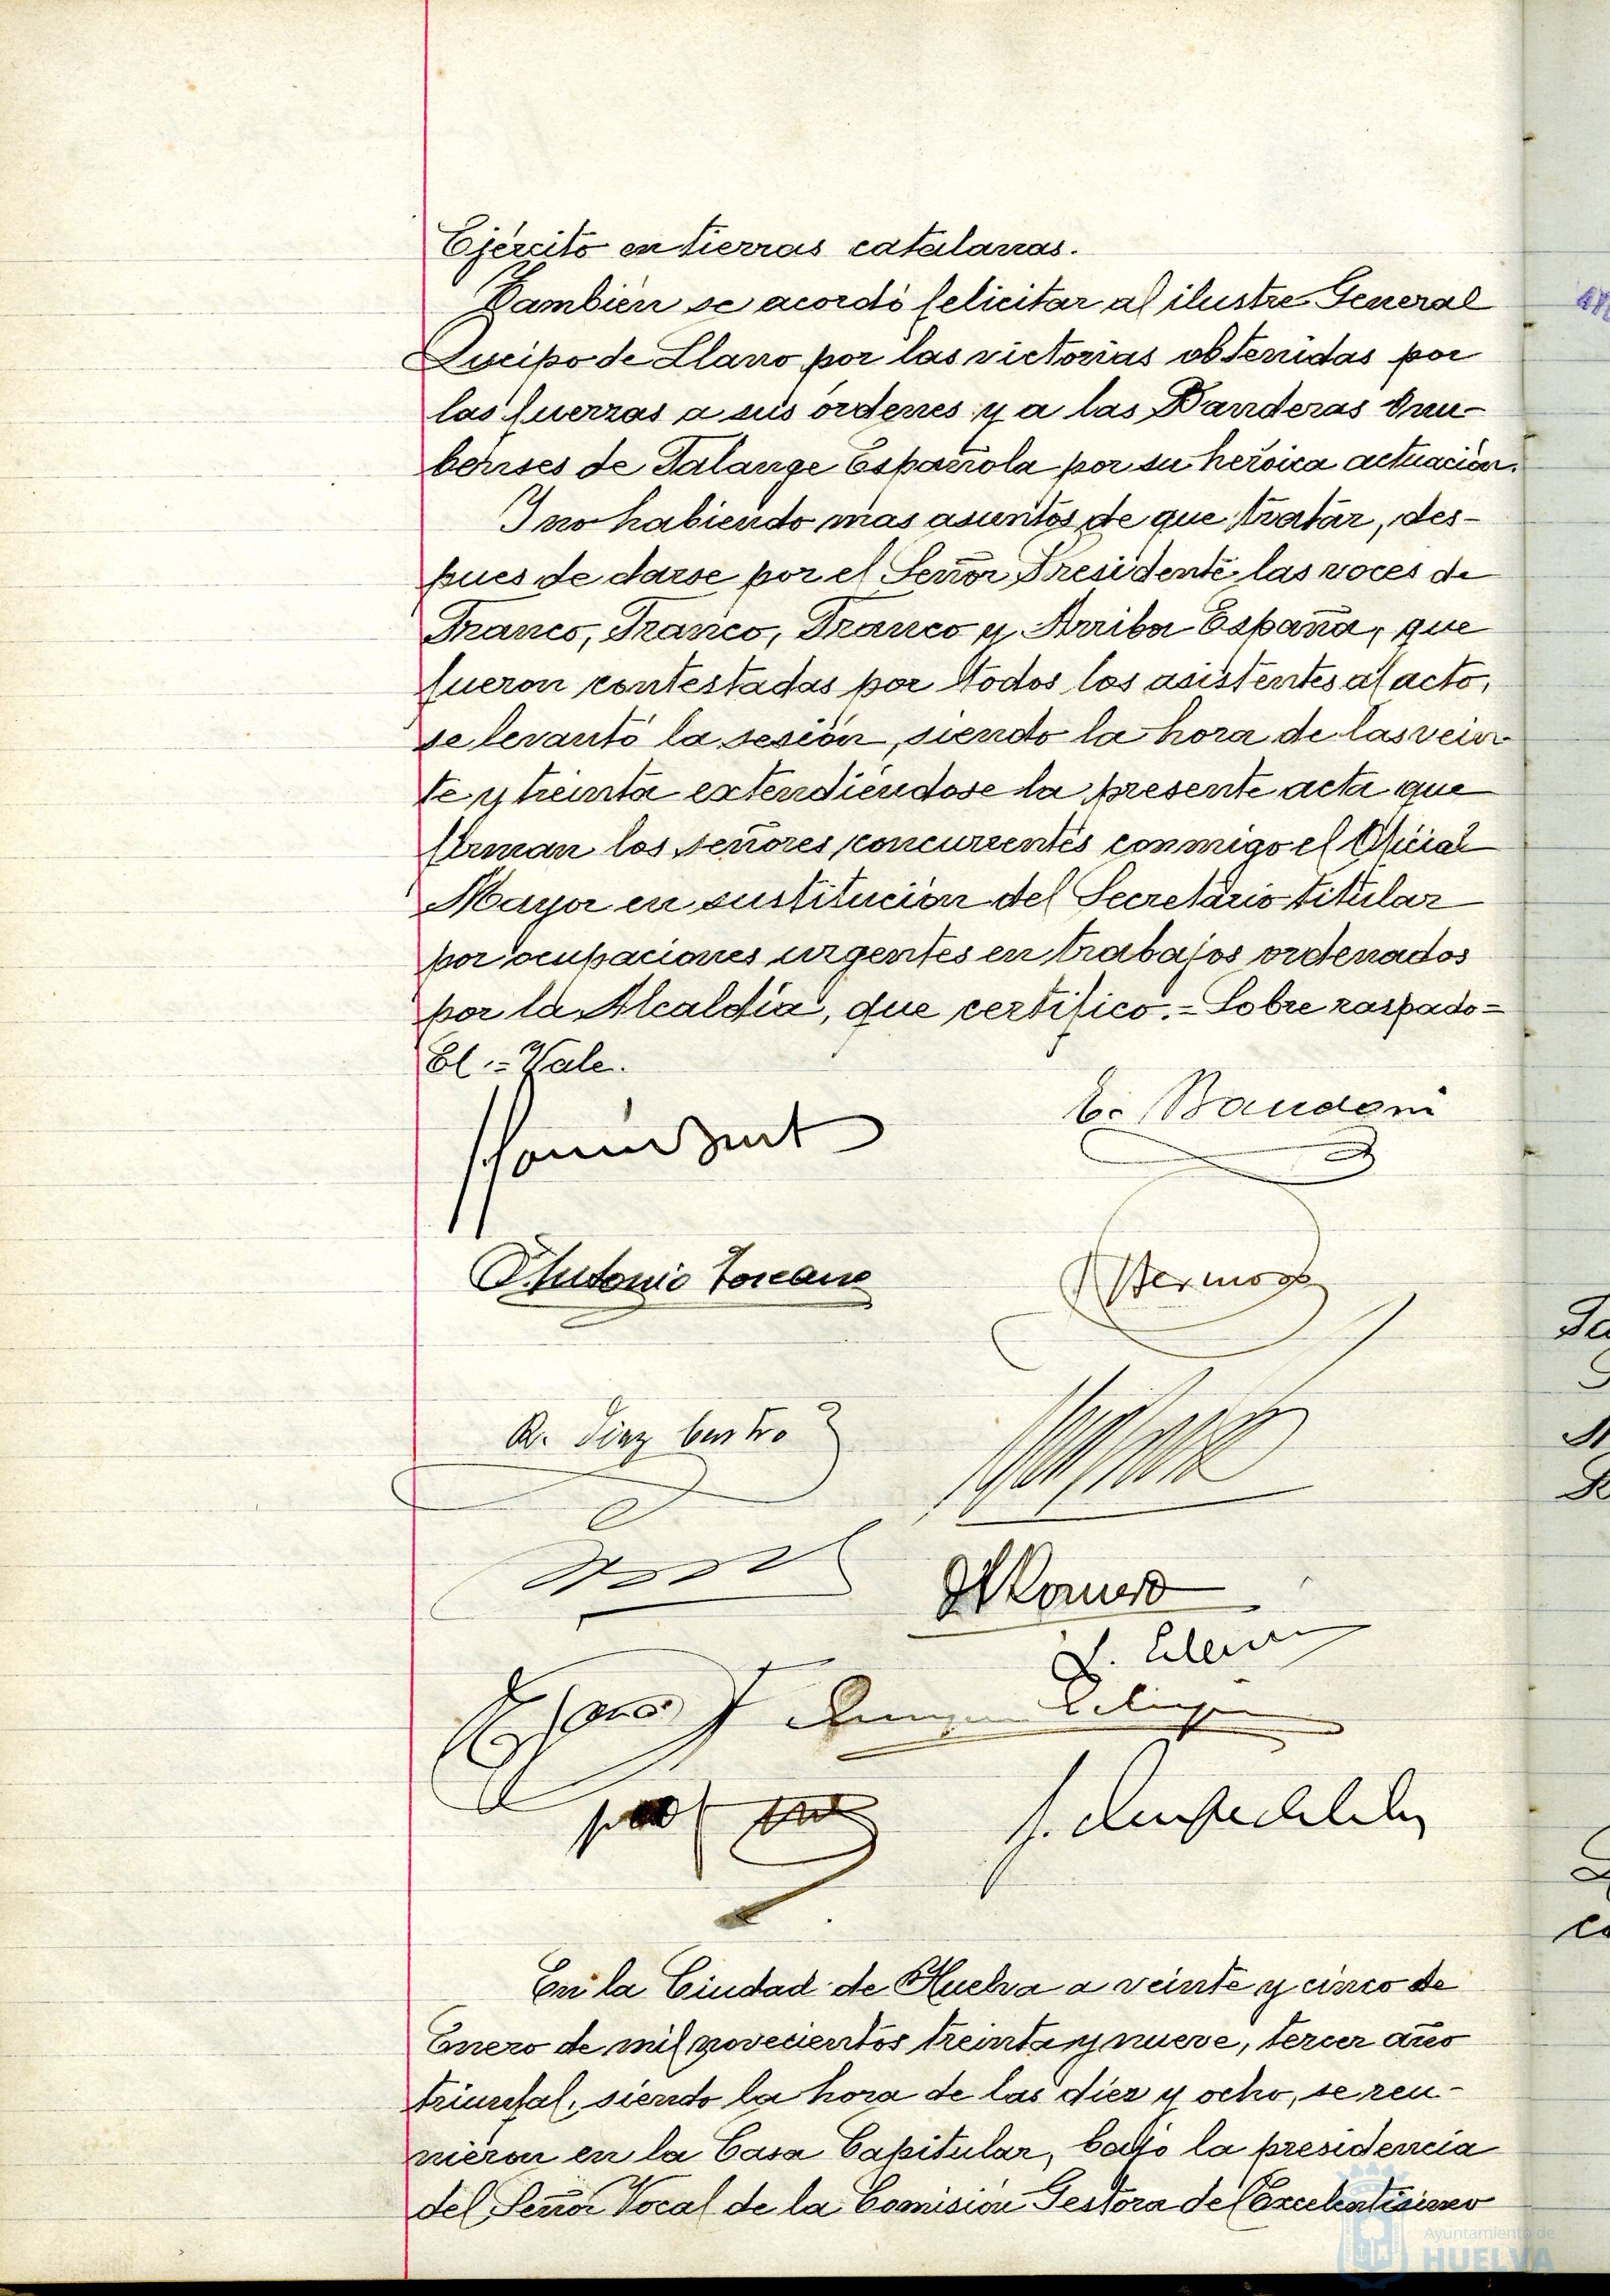 Ejército en tierras catalanas.
Tambien se acordó felicitar al ilustre General
Queipo de Llano por las victorias obtenidas por
las fuerzas a sus órdenes y a las Banderas Onu-
benses de Falange Española por su heróica actuación.
Y no habiendo mas asuntos de que tratar, des-
pues de darse por el Señor Presidente las voces de
Franco, Franco, Franco y Arriba España, que
fueron contestadas por todos los asistentes al acto,
se levantó la sesión, siendo la hora de las vein-
te y treinta extendiéndose la presente acta que
firman los señores concurrentes conmigo el Oficial
Mayor en sustitución del Secretario titular
por ocupaciones urgentes en trabajos ordenados
por la Alcaldía, que certifico.= Sobre raspado=
El.= Vale.
Antonio Toscano
R. Diaz Castro
Romero
En la Ciudad de Huelva a veinte y cinco de
Enero de mil novecientos treinta y nueve, tercer año
triunfal, siendo la hora de las diez y ocho, se reu-
nieron en la Casa Capitular, bajo la presidencia
del Señor Vocal de la Comision Gestora del Excelentísimo
Ayuntamiento de
HUELVA